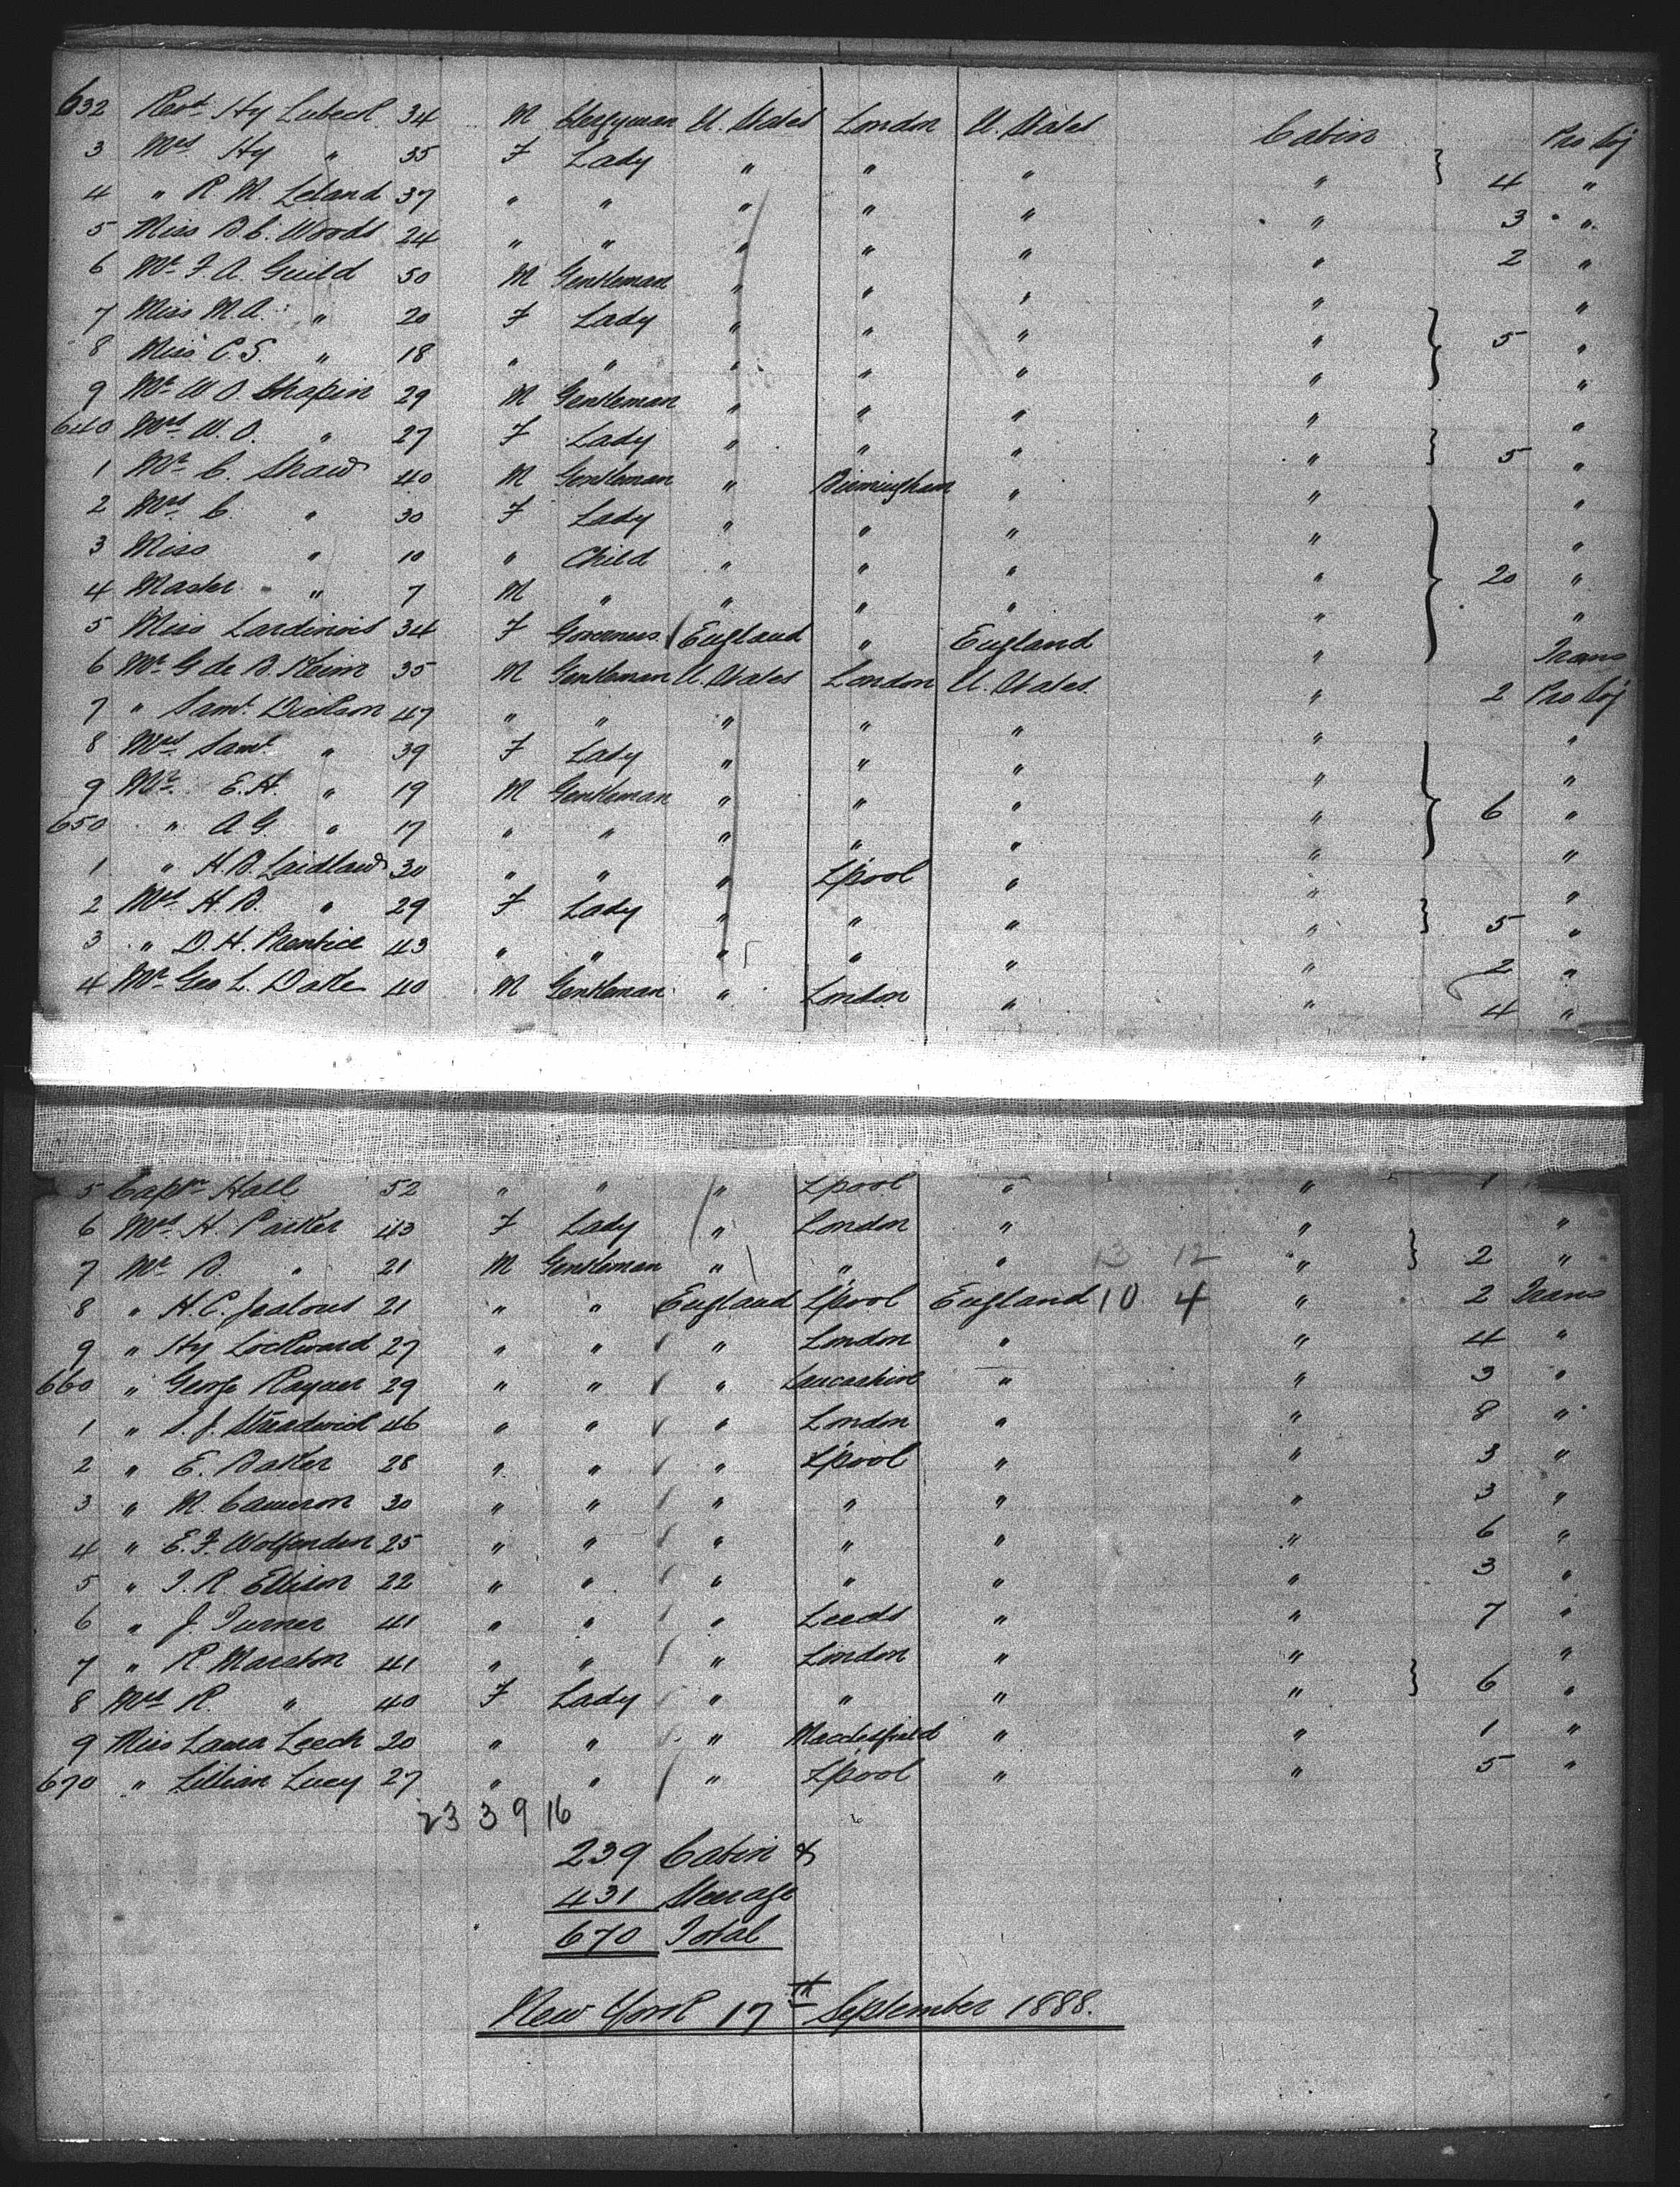 632 Revd Hy Lubeck 34 M Clergyman U. States London U. States Cabin Pro Soj
3 Mrs Hy " 35 F Lady " " " " } 4 "
4 " R. M. Leland 37 " " " " " " 3 "
5 Miss B. C. Woods 24 " " " " " " 2 "
6 Mr F. A. Guild 50 M Gentleman " " " " "
7 Miss M. A. " 20 F Lady " " " " } 5 "
8 Miss C. S. " 18 " " " " " " "
9 Mr W. O. Chapin 29 M Gentleman " " " " "
640 Mrs W. O. " 27 F Lady " " " " } 5 "
1 Mr C. Shaw 40 M Gentleman " Birmingham " " "
2 Mrs C. " 30 F Lady " " " " "
3 Miss " 10 " Child " " " " } 20 "
4 Master " 7 M " " " " " "
5 Miss Lardinois 34 F Governess England " England " Trans
6 Mr G de B. Keim 35 M Gentleman U. States London U. States " 2 Pro Soj
7 " Saml Dickson 47 " " " " " " "
8 Mrs Saml " 39 F Lady " " " " "
9 Mr E. H. " 19 M Gentleman " " " " } 6 "
650 " A G. " 17 " " " " " " "
1 " H. B. Laidlaw 30 " " " L'pool " " "
2 Mrs H. B. " 29 F Lady " " " " } 5 "
3 " D. H. Prentice 43 " " " " " " 2 "
4 Mr Geo L. Dale 40 M Gentleman " London " " 4 "
5 Captn Hall 52 " " " L'pool " " 1
6 Mrs H. Parker 43 F Lady " London " " "
7 Mr B. " 21 M Gentleman " " " 13 12 " } 2 "
8 " H. C. Jealous 21 " " England L'pool England 10 4 " 2 Trans
9 " Hy Lockward 27 " " " London " " 4 "
660 " George Rayner 29 " " " Lancashire " " 3 "
1 " S. J. 46 " " " London " " 8 "
2 " E. Baker 28 " " " L'pool " " 3 "
3 " M. Cameron 30 " " " " " " 3 "
4 " E. F. Wolfenden 25 " " " " " " 6 "
5 " J. R. Ellison 22 " " " " " " 3 "
6 " J. Turner 41 " " " Leeds " " 7 "
7 " R. Marston 41 " " " London " " "
8 Mrs R. " 40 F Lady " " " " } 6 "
9 Miss Laura Leech 20 " " " Macclesfield " " 1 "
670 " Lillian Lucy 27 " " " L'pool " " 5 "
23 3 9 16
239 Cabin &
431 Steerage
670 Total
New York 17th September 1888.